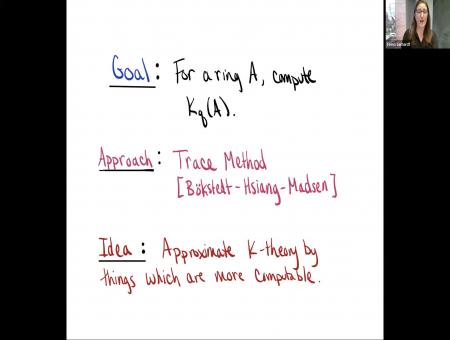 Goal: For a ring A, compute
Kq(A).
Approach: Trace Method
[Bökstedt-Hsiang-Madsen]
Idea: Approximate K-theory by
things which are more computable.
Teena Gerhardt